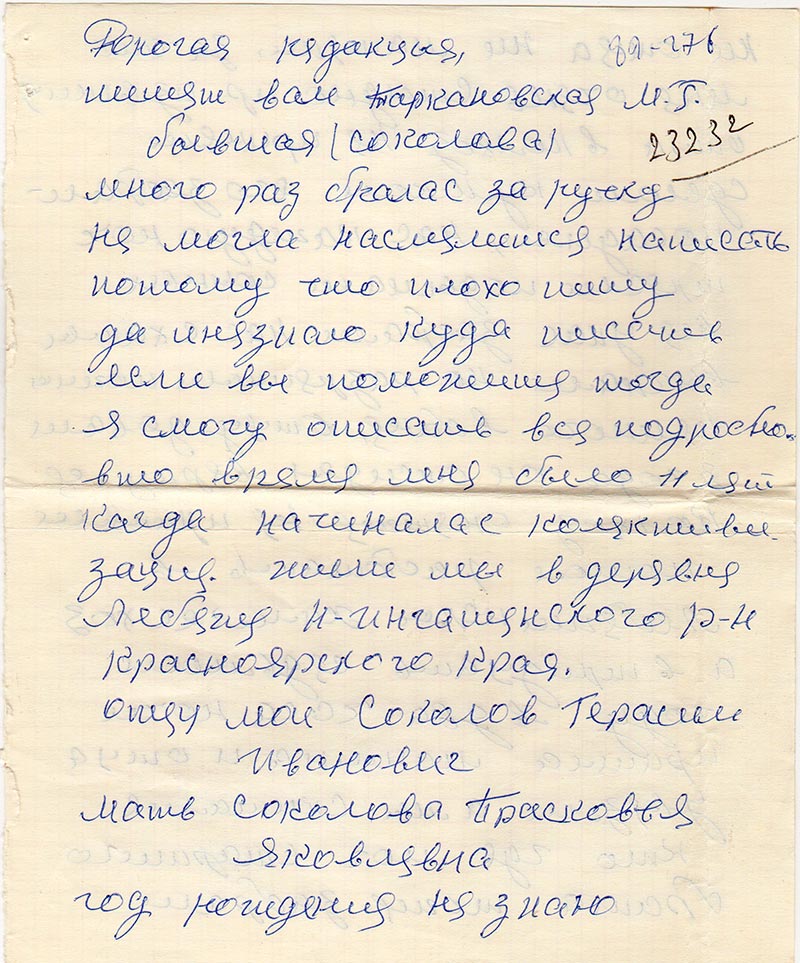 Дорогая редакция, 89-276
пишет вам Таркановская М.Г.
бывшая (Соколова) 23232
много раз бралас за ручку
не могла насмелится написать
потому что плохо пишу
да и незнаю куда писать
если вы поможите тогда
я смогу описать все подробно.
вто время мне было 11 лет
Кагда начиналас колективи-
зация. жили мы в деревне
Лебяге Н-Ингашенского р-н
Красноярского Края.
отцу мои Соколов Герасим
Иванович
мать Соколова Прасковья
Яковлевна
год рождения не знаю